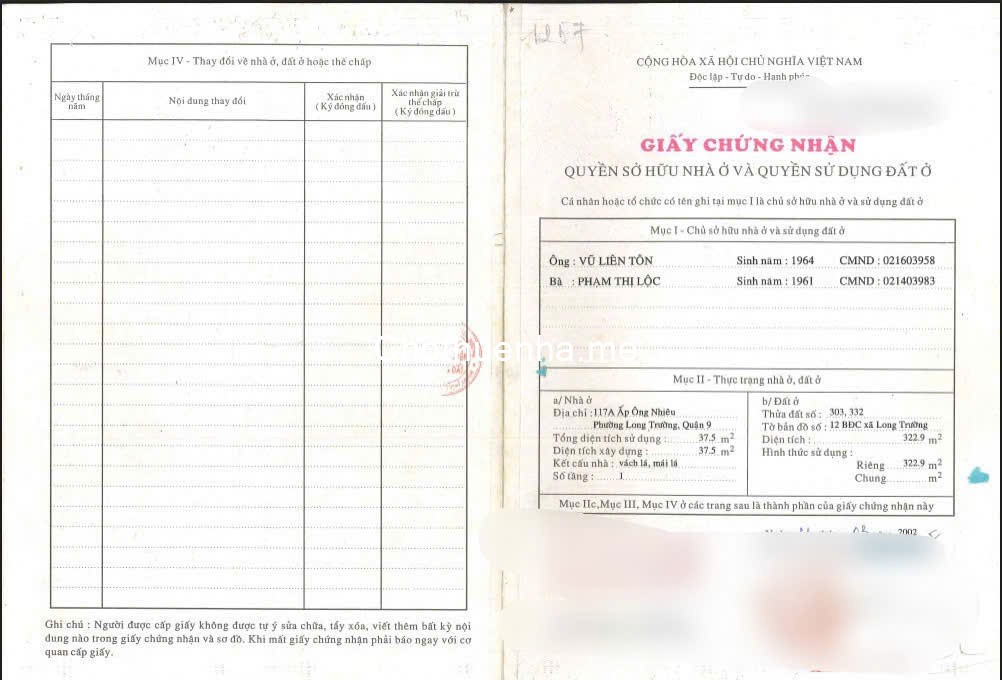 Mục IV - Thay đổi về nhà ở, đất ở hoặc thế chấp
Ngày tháng năm
Nội dung thay đổi
Xác nhận
( Ký đóng dấu )
Xác nhận giải trừ
thế chấp
( Ký đóng dấu )
Ghi chú : Người được cấp giấy không được tự ý sửa chữa, tẩy xóa, viết thêm bất kỳ nội
dung nào trong giấy chứng nhận và sơ đồ. Khi mất giấy chứng nhận phải báo ngay với cơ
quan cấp giấy.
CỘNG HÒA XÃ HỘI CHỦ NGHĨA VIỆT NAM
Độc lập - Tự do - Hạnh
GIẤY CHỨNG NHẬN
QUYỀN SỞ HỮU NHÀ Ở VÀ QUYỀN SỬ DỤNG ĐẤT Ở
Cá nhân hoặc tổ chức có tên ghi tại mục I là chủ sở hữu nhà ở và sử dụng đất ở
Mục I - Chủ sở hữu nhà ở và sử dụng đất ở
Ông : VŨ LIÊN TÔN Sinh năm : 1964 CMND : 021603958
Bà : PHẠM THỊ LỘC Sinh năm : 1961 CMND : 021403983
Mục II - Thực trạng nhà ở, đất ở
a/ Nhà ở
Địa chỉ : 117A Ấp Ông Nhiêu
Phường Long Trường, Quận 9
Tổng diện tích sử dụng : 37.5 m²
Diện tích xây dựng : 37.5 m²
Kết cấu nhà : vách lá, mái lá
Số tầng : 1
b/ Đất ở
Thửa đất số : 303, 332
Tờ bản đồ số : 12 BĐC xã Long Trường
Diện tích : 322.9 m²
Hình thức sử dụng :
Riêng 322.9 m²
Chung m²
Mục IIc, Mục III, Mục IV ở các trang sau là thành phần của giấy chứng nhận này
2002